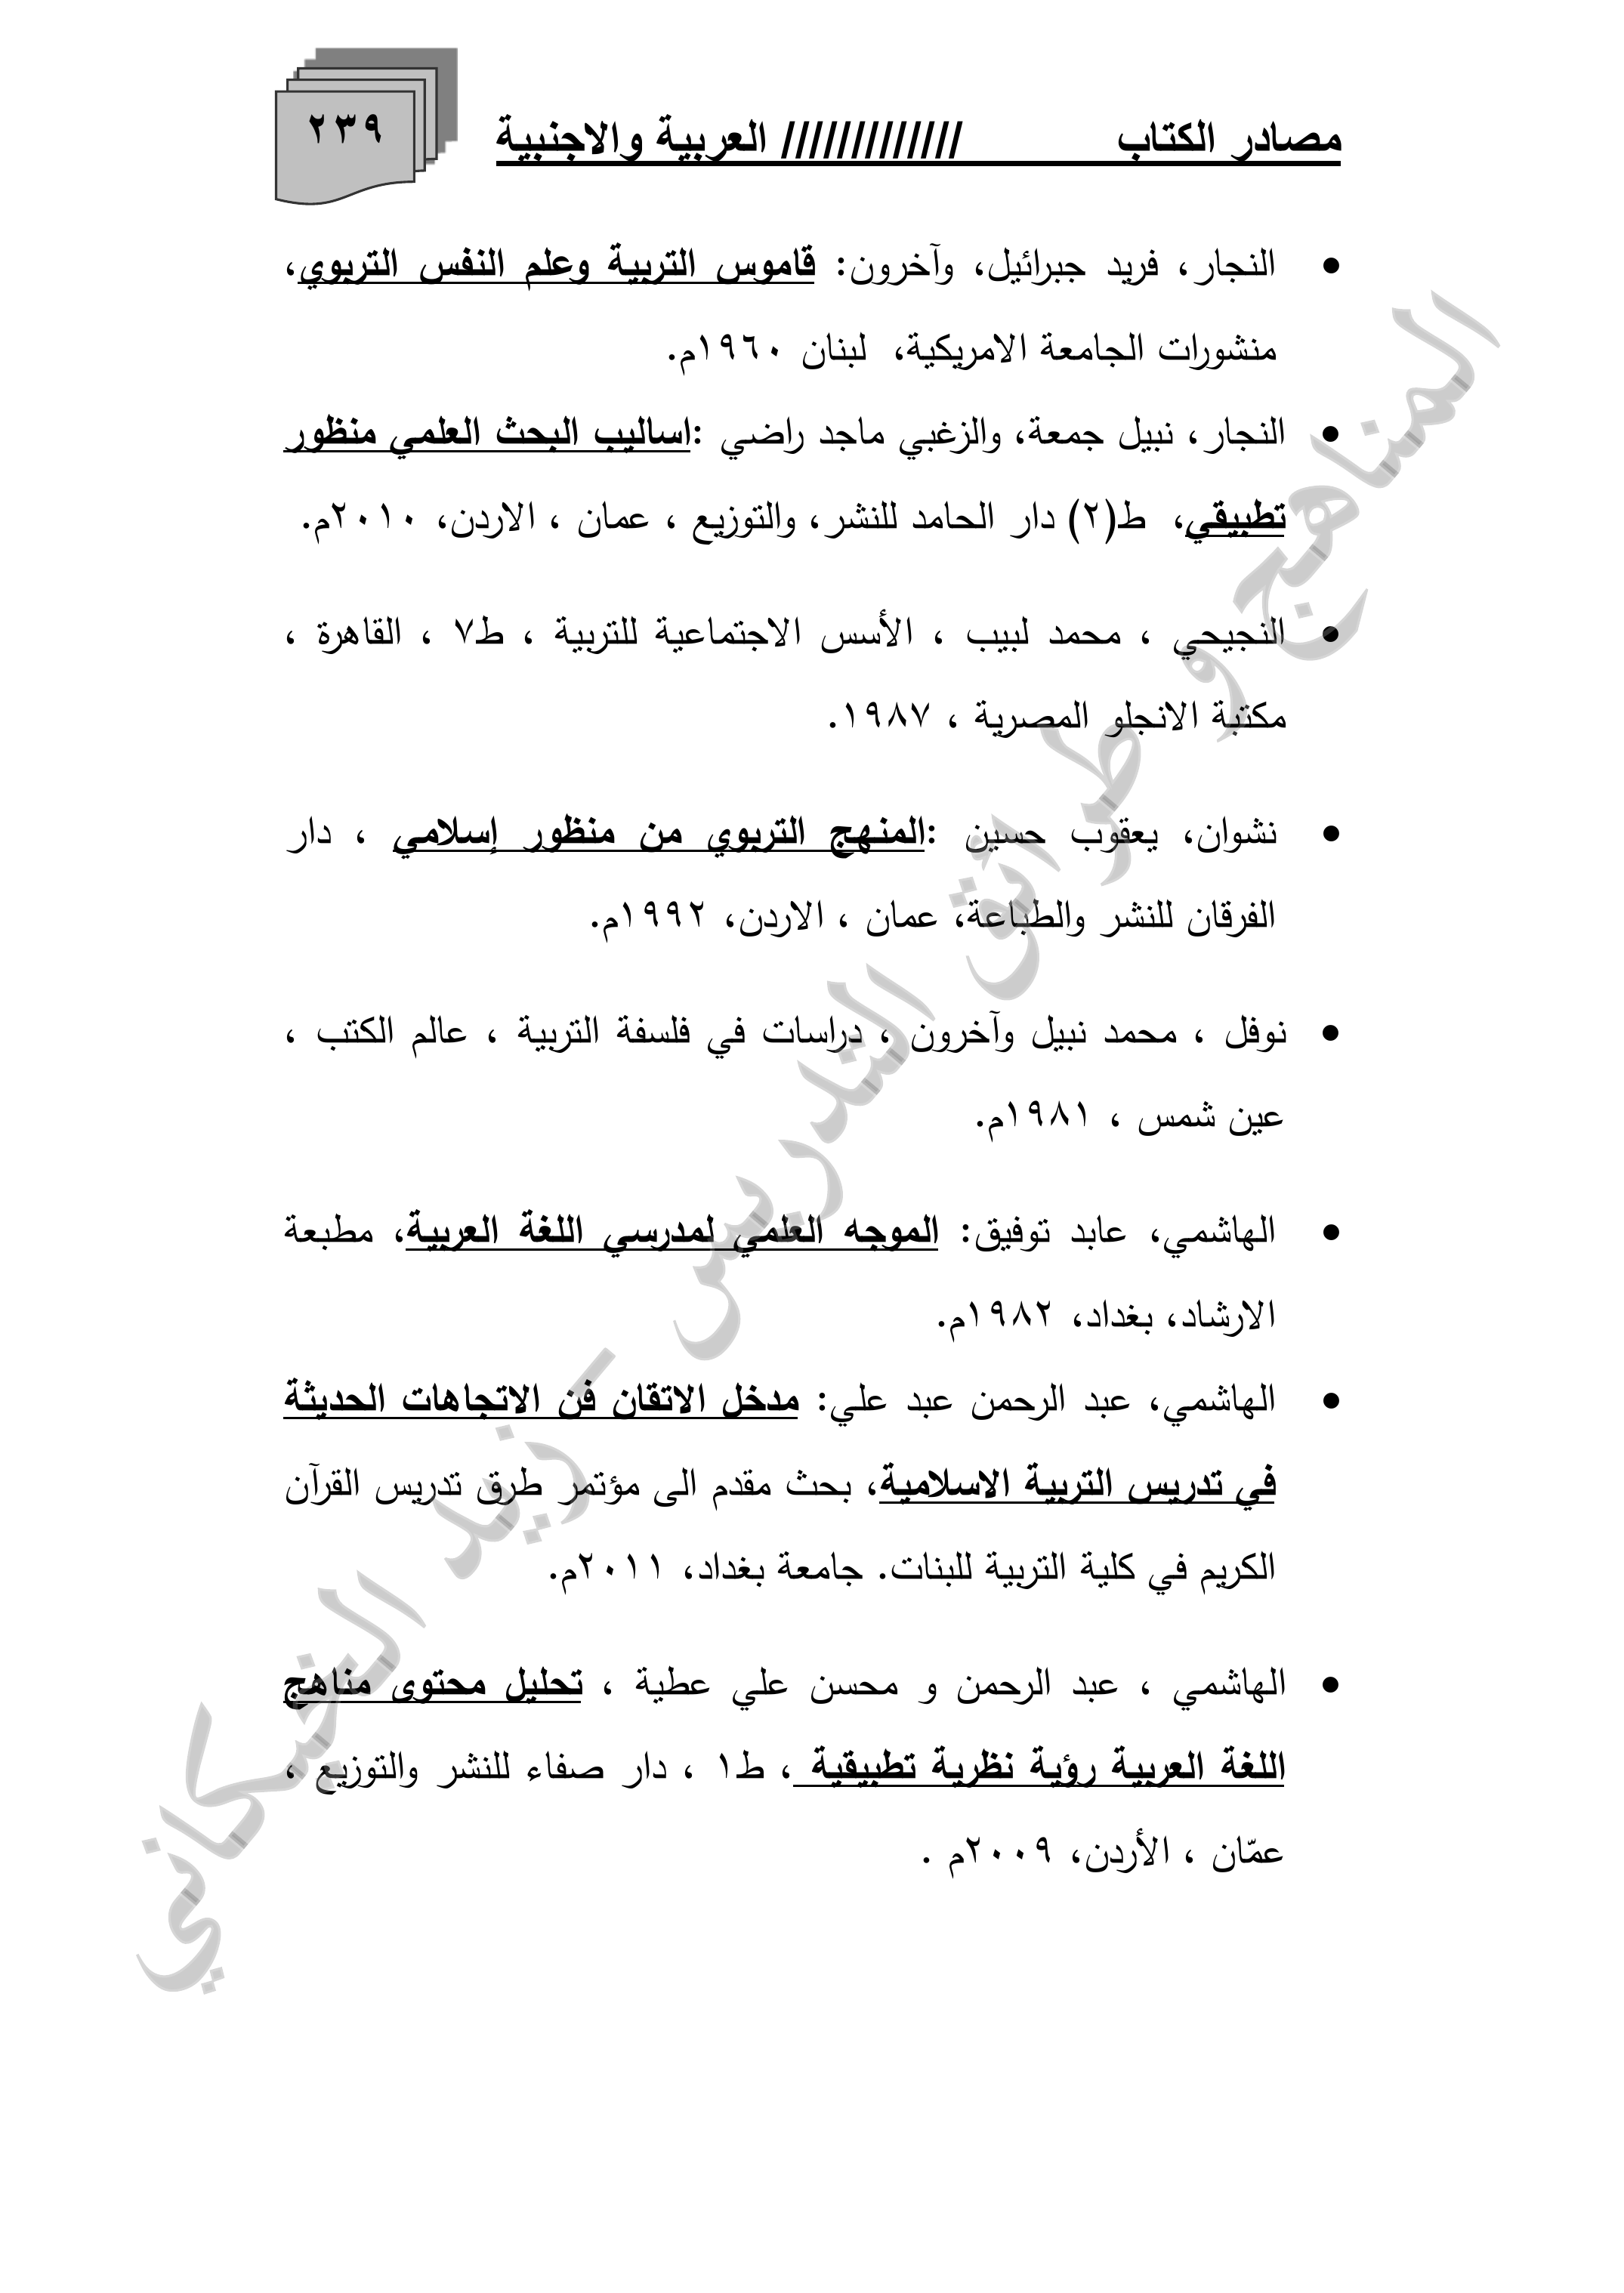 مصادر الكتاب ///////////// العربية والاجنبية
٢٣٩
• النجار، فريد جبرائيل، وآخرون: قاموس التربية وعلم النفس التربوي،
منشورات الجامعة الامريكية، لبنان ١٩٦٠م.
• النجار، نبيل جمعة، والزغبي ماجد راضي :اساليب البحث العلمي منظور
تطبيقي، ط(٢) دار الحامد للنشر، والتوزيع ، عمان ، الاردن، ٢٠١٠م.
• النجيحي ، محمد لبيب ، الأسس الاجتماعية للتربية ، ط٧ ، القاهرة ،
مكتبة الانجلو المصرية ، ١٩٨٧.
• نشوان، يعقوب حسين :المنهج التربوي من منظور إسلامي ، دار
الفرقان للنشر والطباعة، عمان ، الاردن، ١٩٩٢م.
• نوفل ، محمد نبيل وآخرون ، دراسات في فلسفة التربية ، عالم الكتب ،
عين شمس ، ١٩٨١م.
• الهاشمي، عابد توفيق: الموجه العلمي لمدرسي اللغة العربية، مطبعة
الارشاد، بغداد، ١٩٨٢م.
• الهاشمي، عبد الرحمن عبد علي: مدخل الاتقان فن الاتجاهات الحديثة
في تدريس التربية الاسلامية، بحث مقدم الى مؤتمر طرق تدريس القرآن
الكريم في كلية التربية للبنات. جامعة بغداد، ٢٠١١م.
• الهاشمي ، عبد الرحمن و محسن علي عطية ، تحليل محتوى مناهج
اللغة العربية رؤية نظرية تطبيقية ، ط١ ، دار صفاء للنشر والتوزيع ،
عمّان ، الأردن، ٢٠٠٩م .
المناهج و طرائق التدريس - زيد الخيكاني